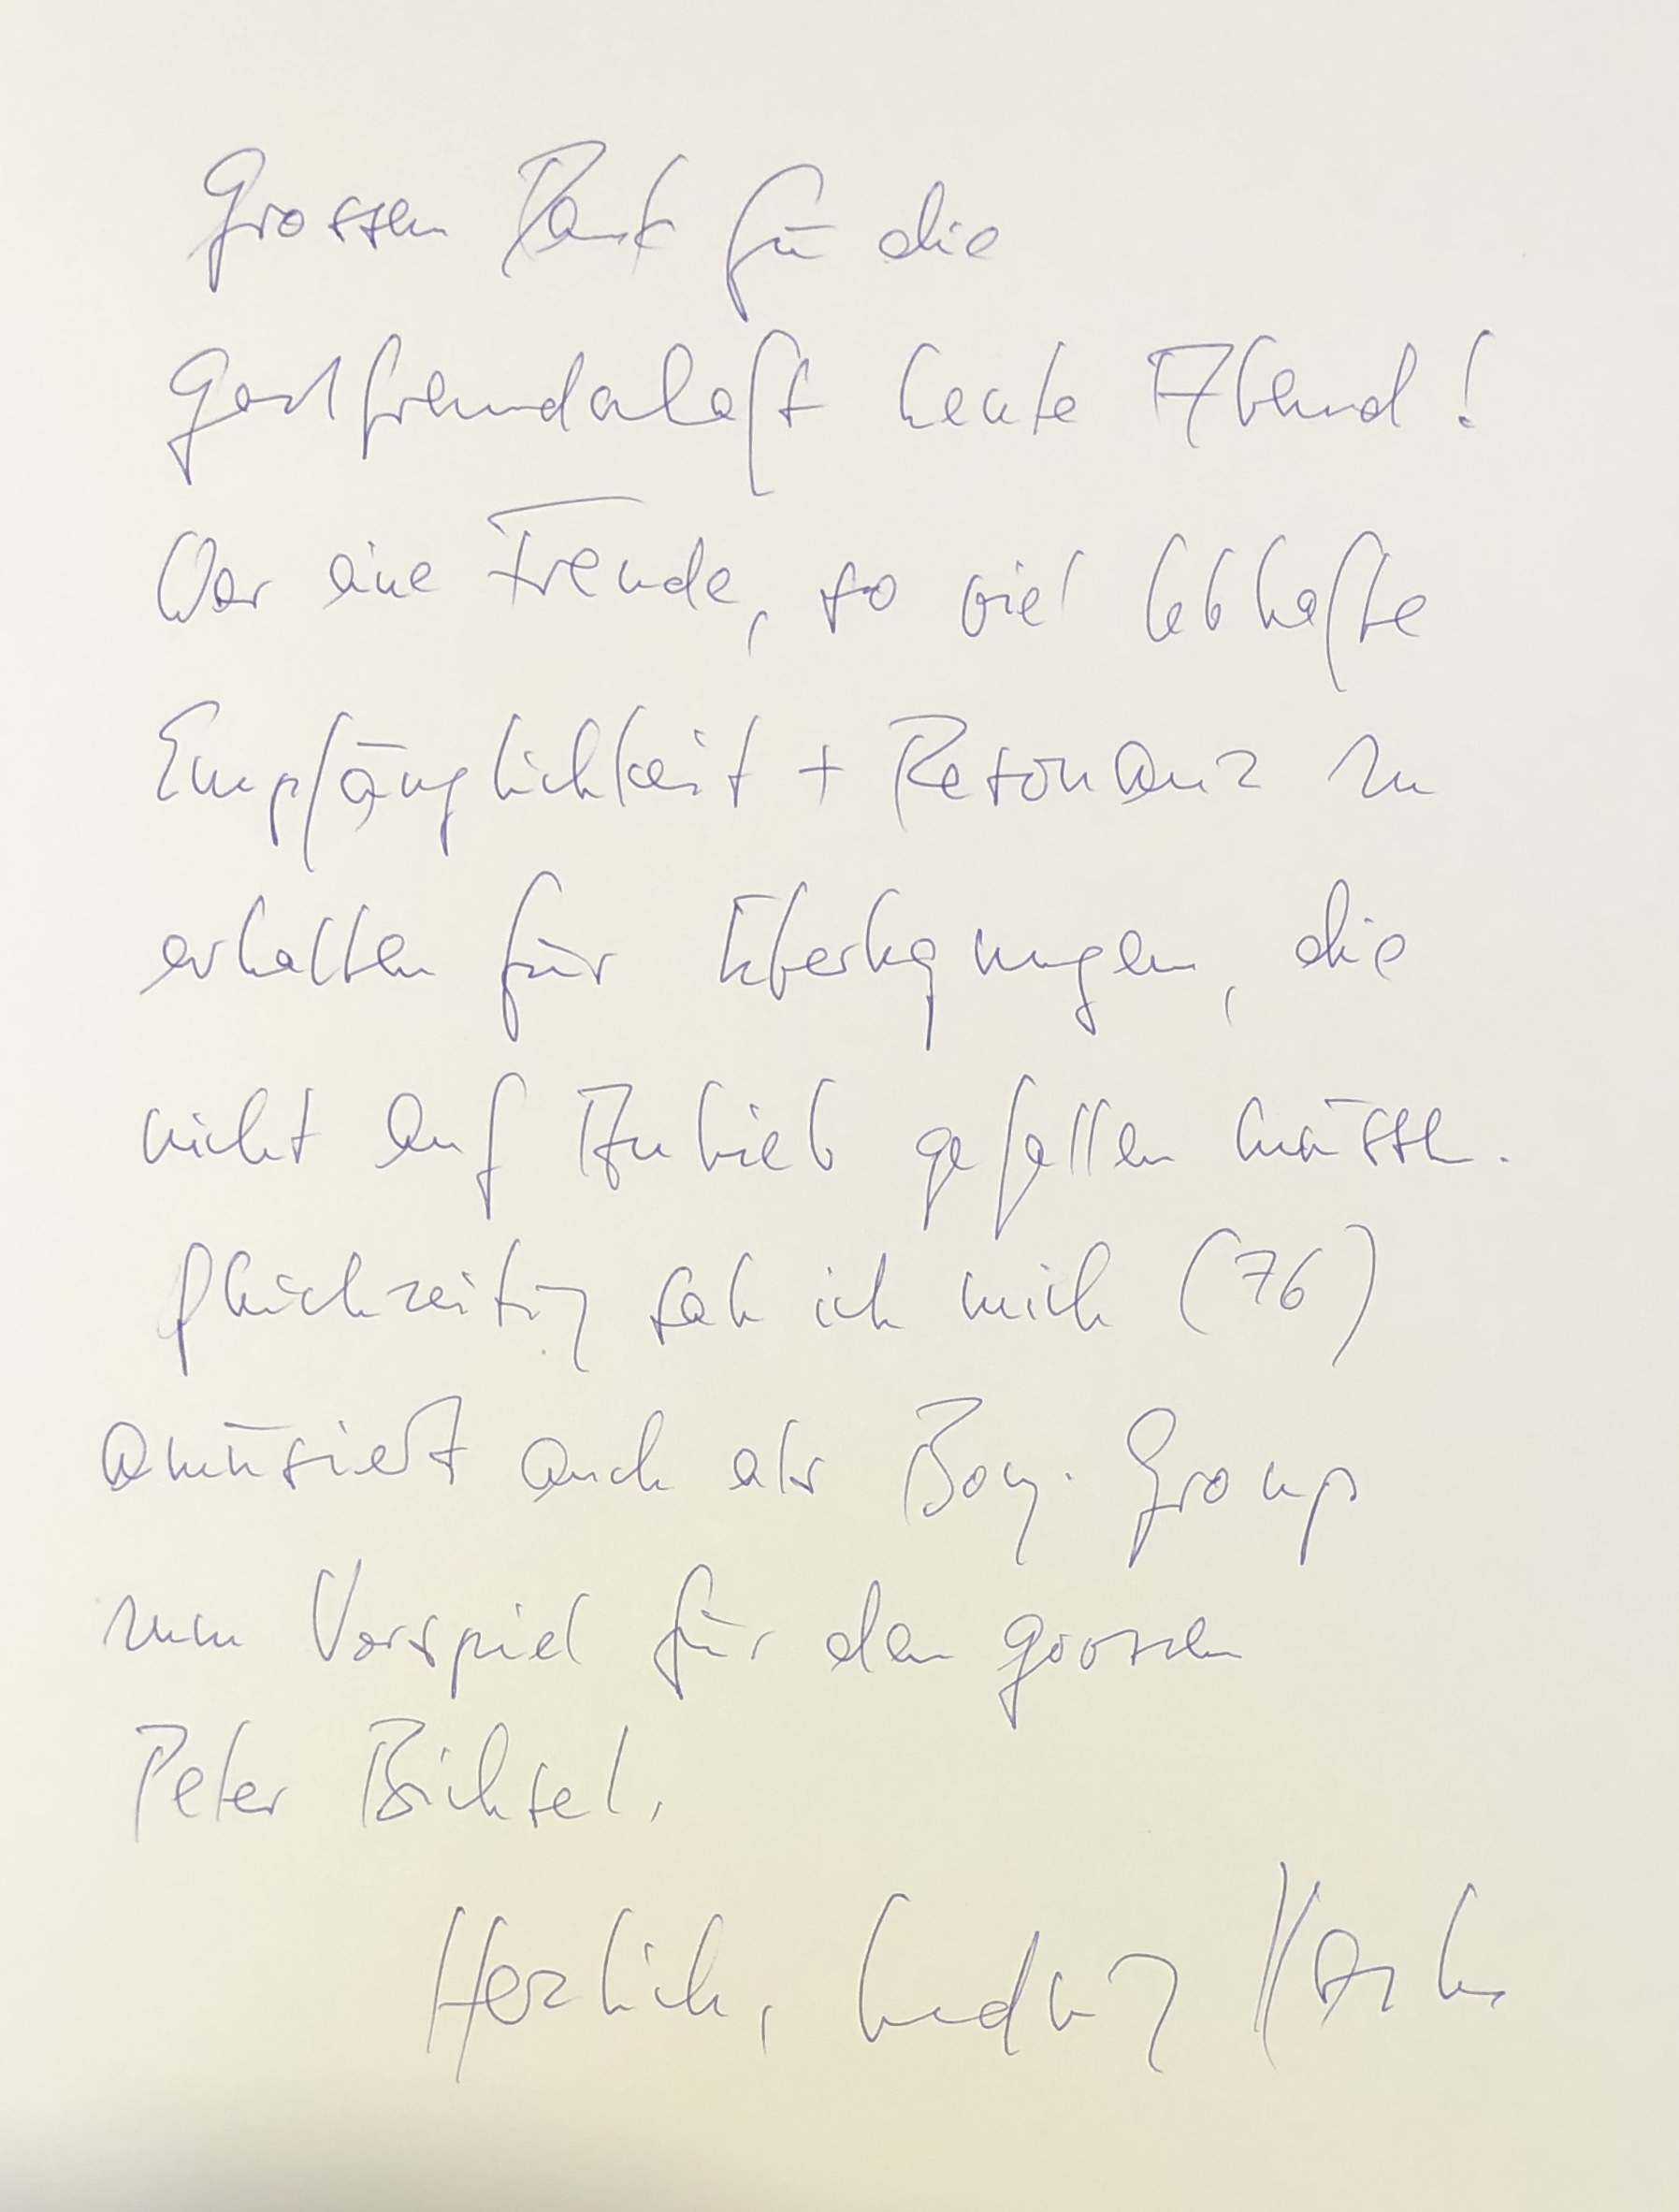 Grossen Dank für die
Gastfreundschaft heute Abend!
War eine Freude, so viel lebhafte
Empfänglichkeit + Resonanz zu
erhalten für Überlegungen, die
nicht auf Anhieb gefallen müssen.
Gleichzeitig sah ich mich (76)
amüsiert auch als Boy-Group
zum Vorspiel für den grossen
Peter Bichsel.
Herzlich, Ludwig Hasler